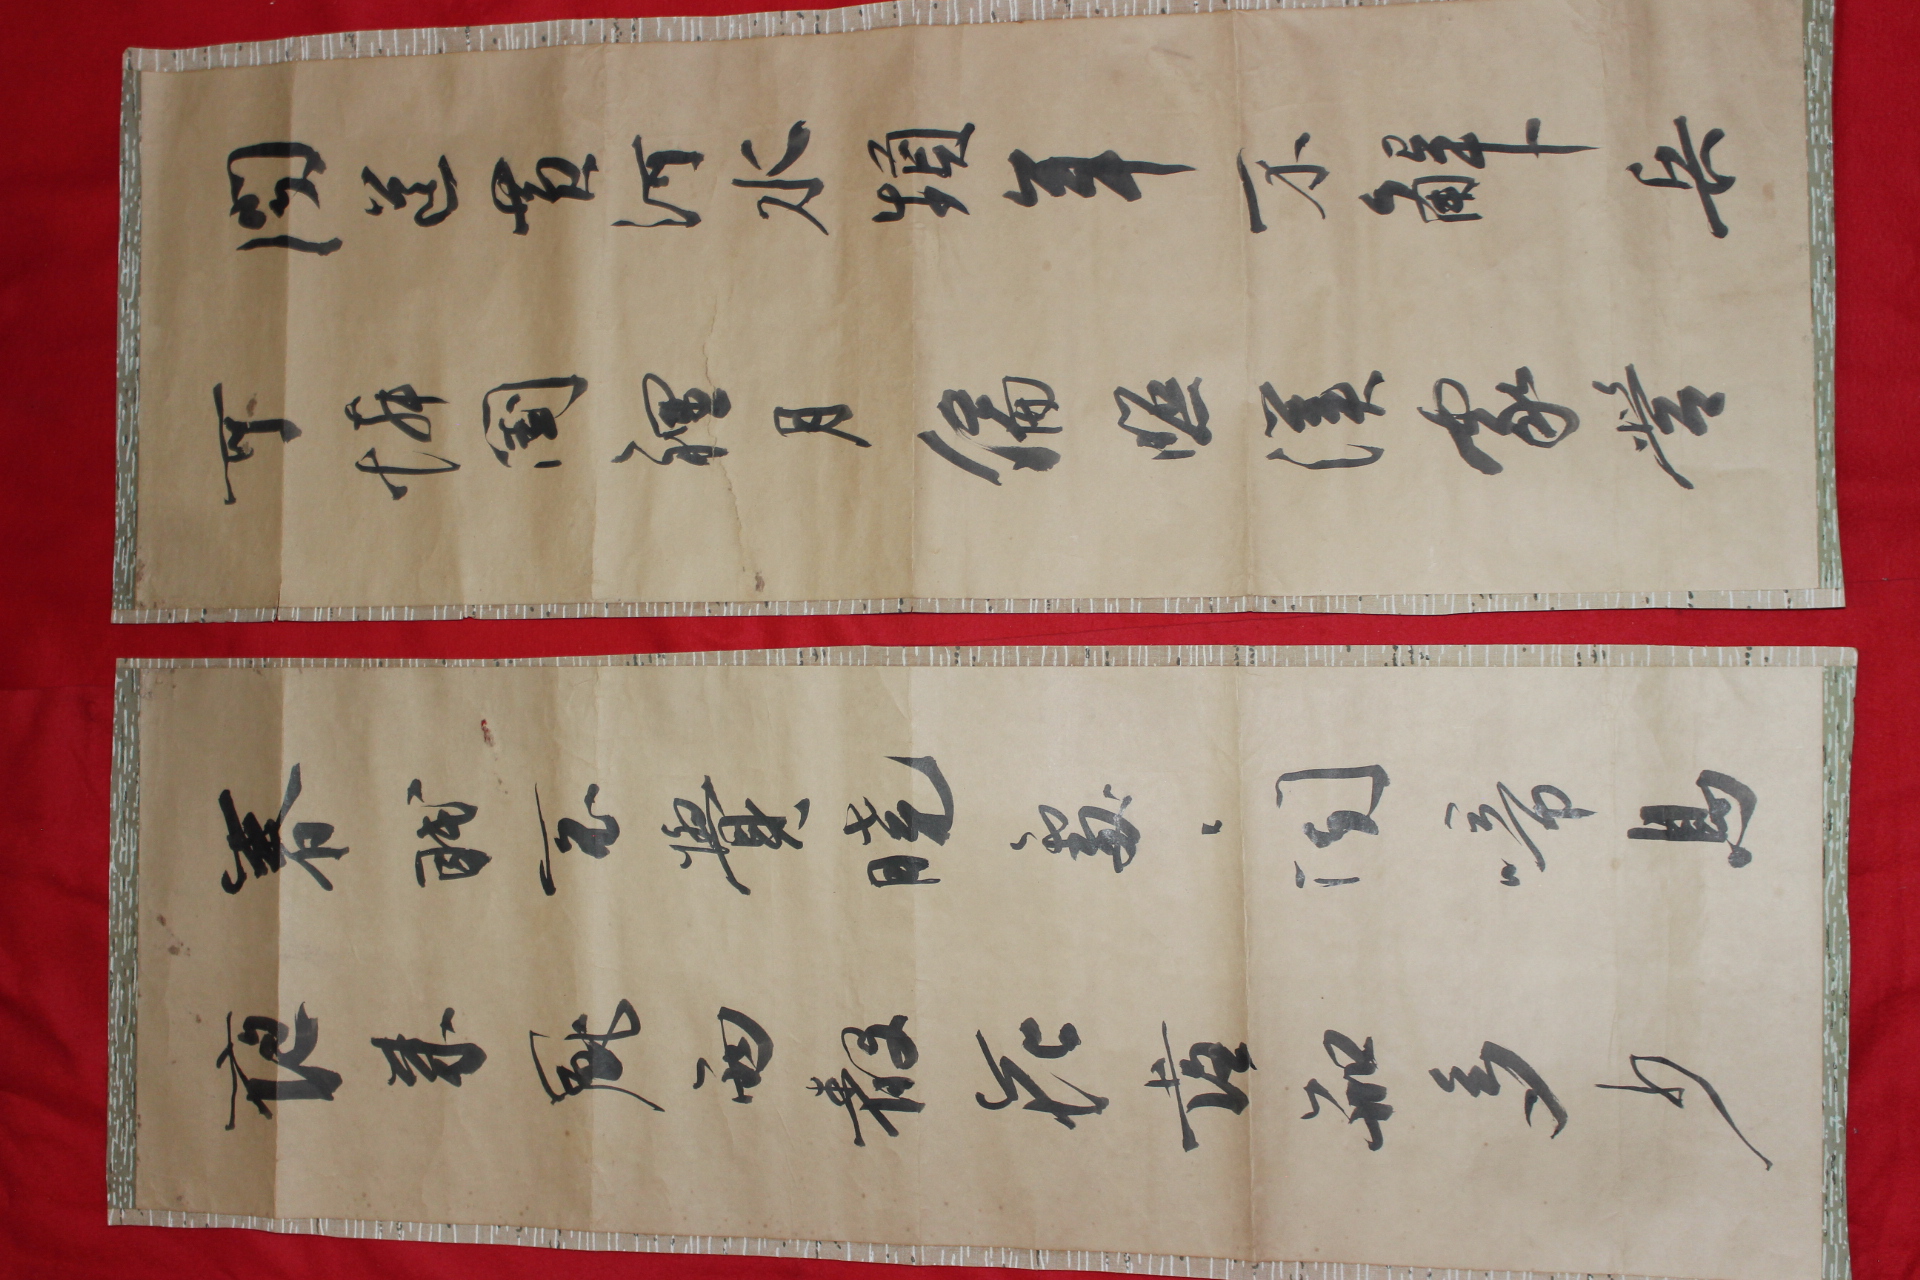 聞道黃河水頻年不解兵
可憐閨裡月偏照漢家營
春眠不覺曉處〻聞啼鳥
夜來風雨聲花落知多少